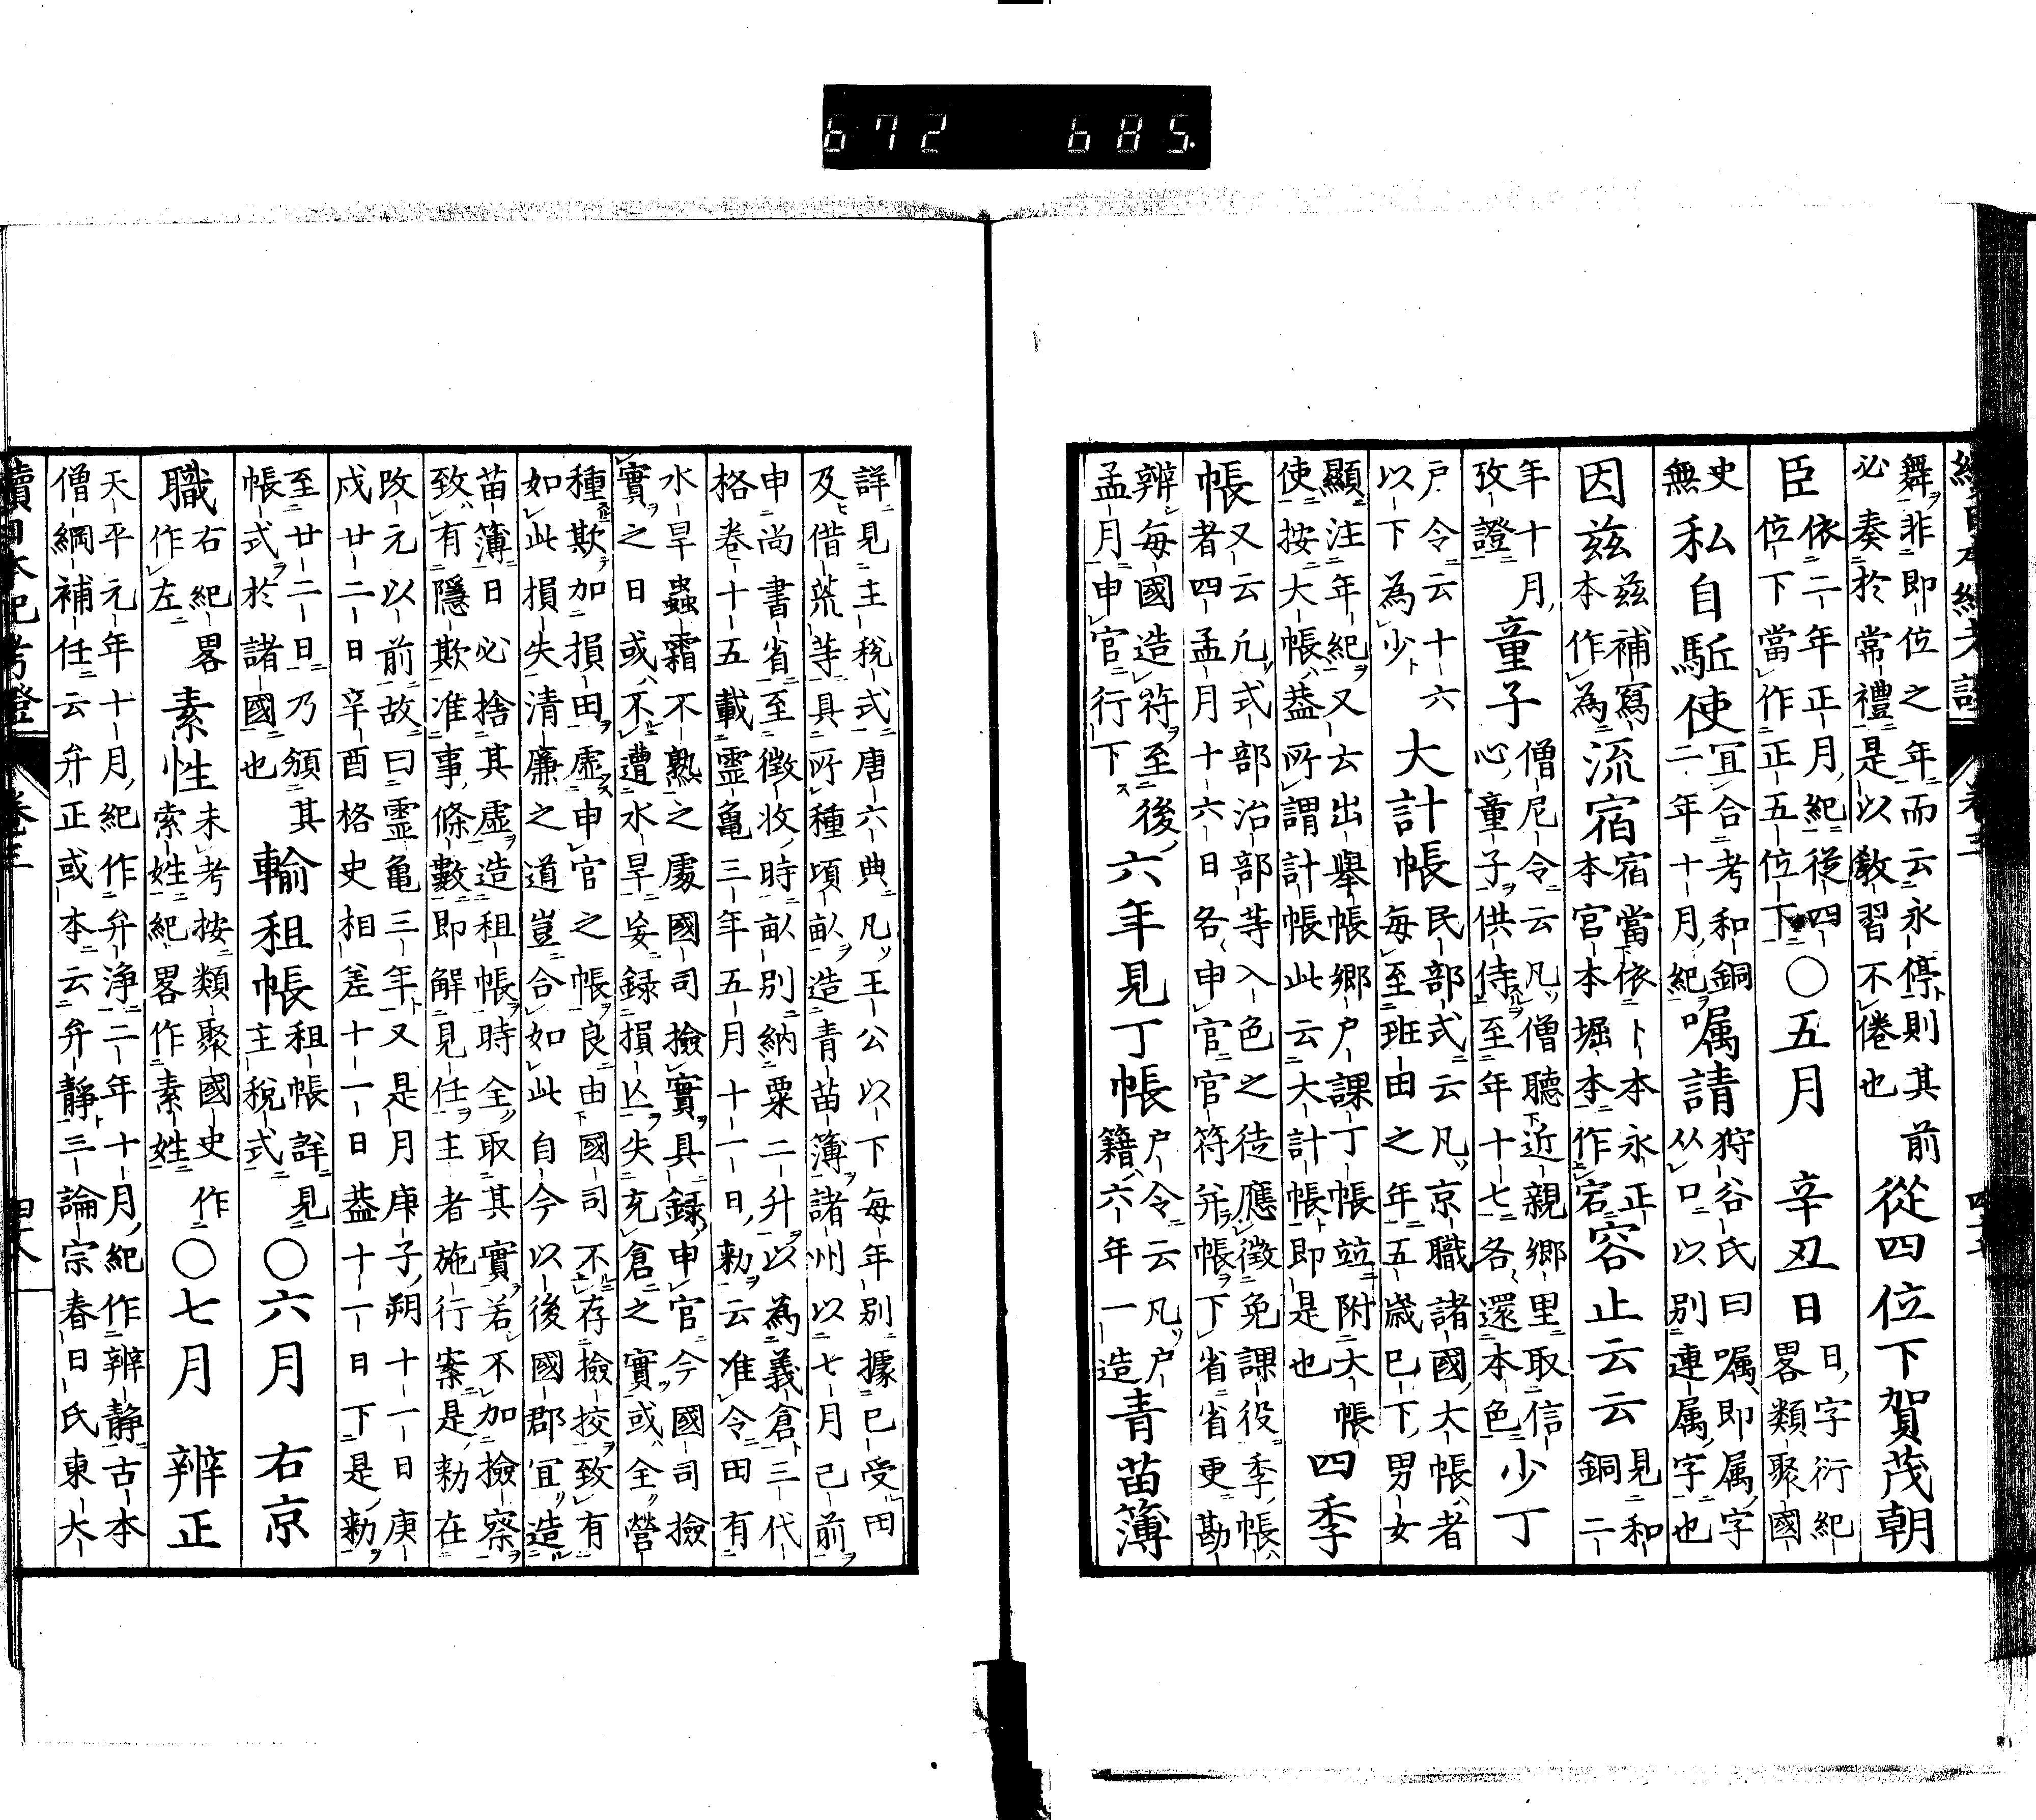 續日本紀考證 卷三
舞非即位之年而云永停則其前
必奏於常禮是以教習不倦也
從四位下賀茂朝
臣
依二年正月紀從四
位下當作正五位下
○五月 辛丑日
日字衍紀
畧類聚國
史
無
私自駈使
宜合考和銅
二年十月紀
嘱請
狩谷氏曰嘱即属字
从口以別連属字也
因茲
茲補寫
本作為
流宿
宿當依卜本永正
本宮本堀本作宕
容止云云
見和
銅二
年十月
攷證
童子
僧尼令云凡僧聽近親鄉里取信
心童子供侍至年十七各還本色
少丁
戸令云十六
以下為少
大計帳
民部式云凡京職諸國大帳者
每至班田之年五歲已下男女
顯注年紀又云出舉帳鄉戸課丁帳竝附大帳
使按大帳蓋所謂計帳此云大計帳即是也
四季
帳
又云凡式部治部等入色之徒應徵免課役季帳
者四孟月十六日各申官官符并帳下省省更勘
辨每國造符至後
孟月申官行下
六年見丁帳
戸令云凡戸
籍六年一造
青苗簿
詳見主稅式唐六典凡王公以下每年別據已受田
及借荒等具所種頃畝造青苗簿諸州以七月已前
申尚書省至徵收時畝別納粟二升以為義倉三代
格卷十五載靈亀三年五月十一日勑云准令田有
水旱蟲霜不熟之處國司撿實具録申官今國司撿
實之日或不遭水旱妄録損亾失充倉之實或全營
種欺加損田虛申官之帳良由國司不存撿挍致有
如此損失清廉之道豈合如此自今以後國郡宜造
苗簿日必捨其虛造租帳時全取其實若不加撿察
致有隱欺准事條數即解見任主者施行案是勑在
改元以前故曰靈亀三年又是月庚子朔十一日庚
戍廿二日辛酉格史相差十一日蓋十一日下是勑
至廿二日乃頒其
帳式於諸國也
輸租帳
租帳詳見
主稅式
○六月 右京
職
右紀畧
作左
素性
未考按類聚國史作
索姓紀畧作素姓
○七月 辨正
天平元年十月紀作弁淨二年十月紀作辨靜古本
僧綱補任云弁正或本云弁靜三論宗春日氏東大
續日本紀考證 卷三 四十八
672 685.